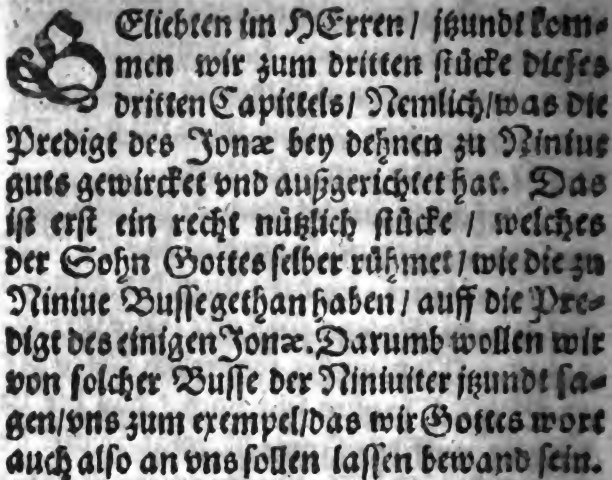 GEliebten im HErren / jtzundt kom⸗
men wir zum dritten stücke dieses
dritten Capittels / Nemlich / was die
Predigt des Jonæ bey dehnen zu Niniue
guts gewircket vnd außgerichtet hat. Das
ist erst ein recht nützlich stücke / welches
der Sohn Gottes selber rühmet / wie die zu
Niniue Busse gethan haben / auff die Pre⸗
digt des einigen Jonæ. Darumb wollen wir
von solcher Busse der Niniuiter jtzundt sa⸗
gen / vns zum exempel / das wir Gottes wort
auch also an vns sollen lassen bewand sein.